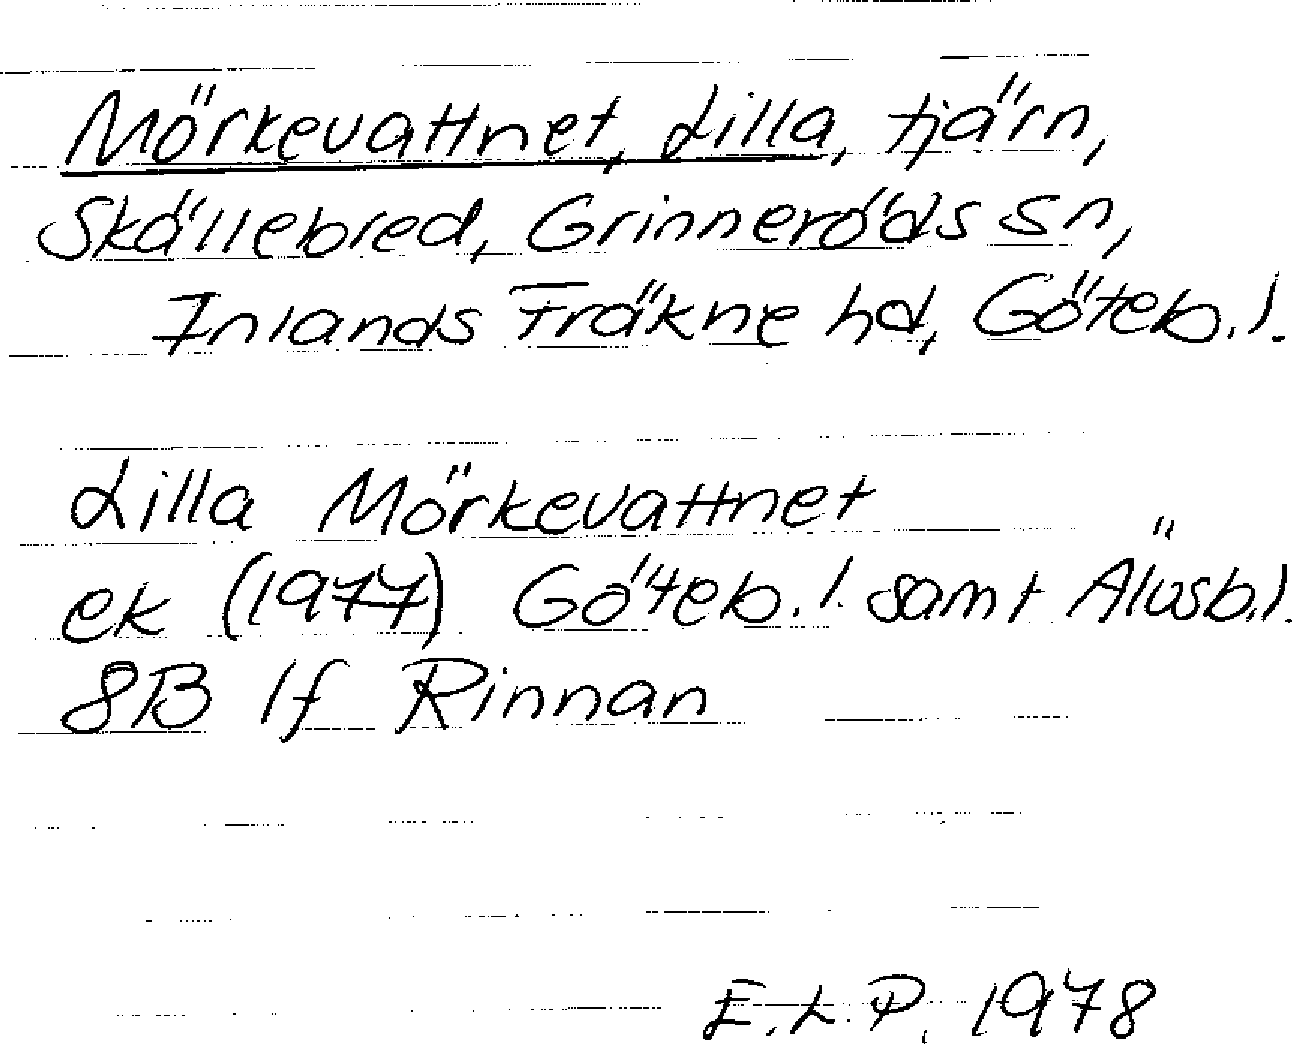 Mörkevattnet, Lilla, tjärn,
Skällebred, Grinneröds sn,
Inlands Fräkne hd, Göteb.l.
Lilla Mörkevattnet
ek (1977) Göteb.l. samt Älvsb.l.
8B 1f Rinnan
E.L.P. 1978